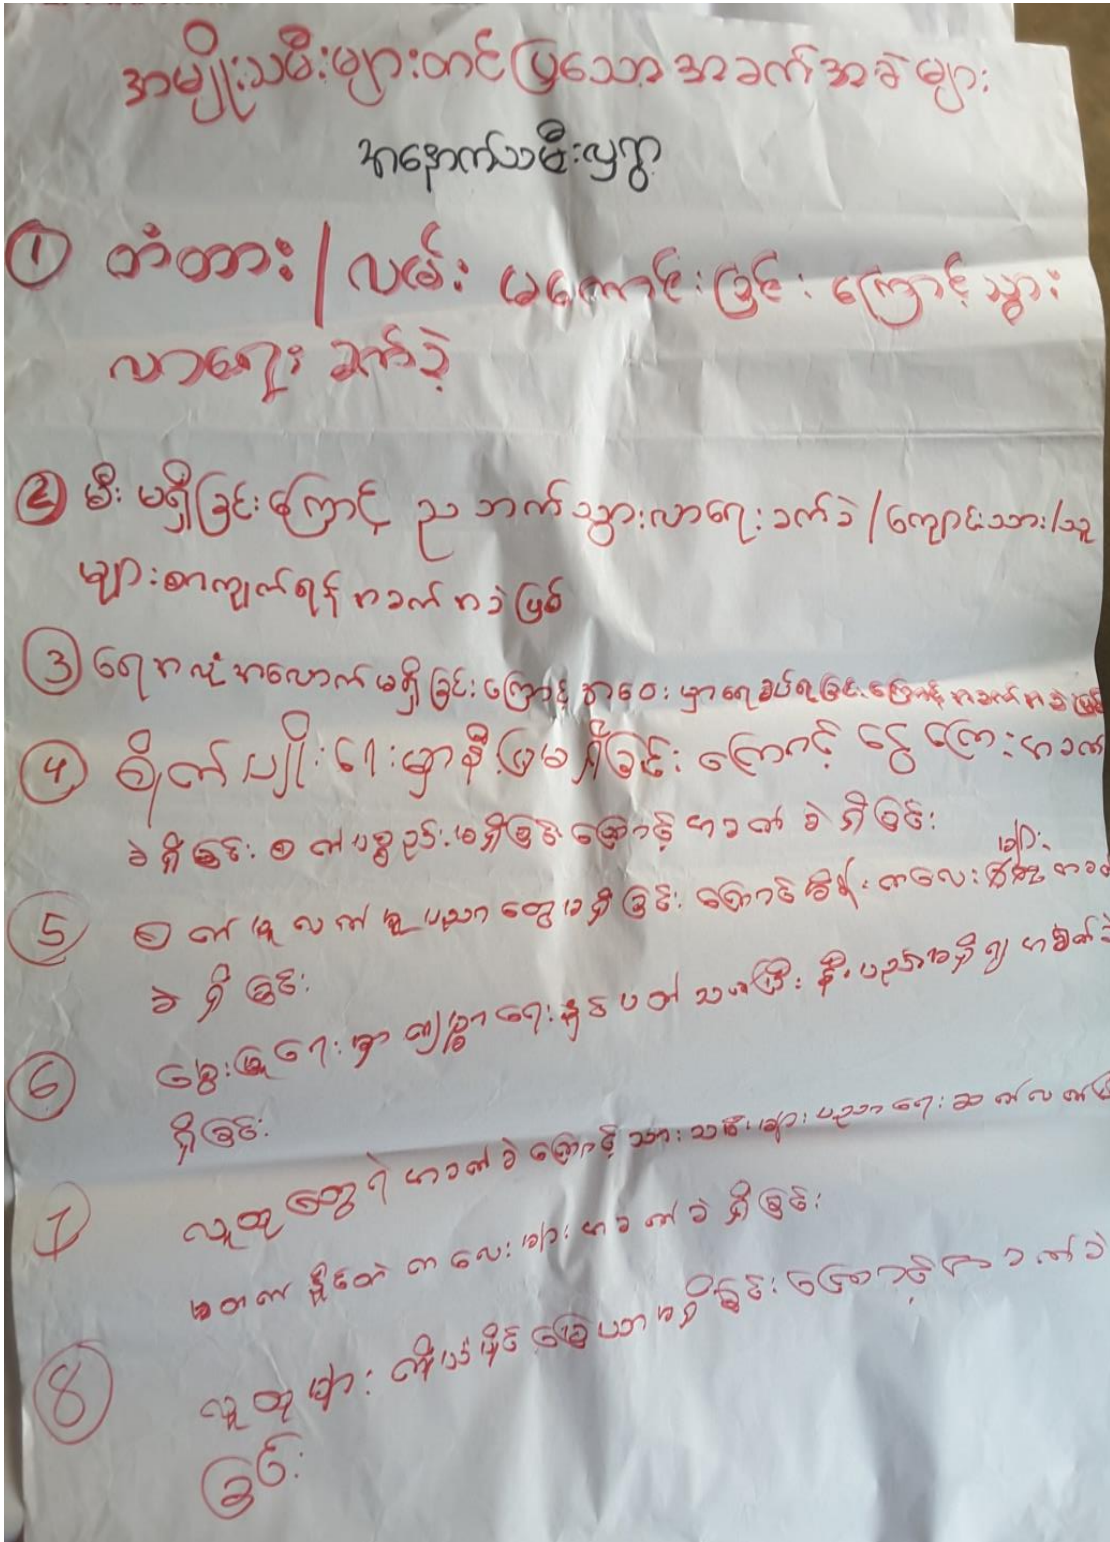 အမျိုးသမီးများတင်ပြသောအခက်အခဲများ
အနောက်သမီးလှရွာ
① တံတား / လမ်း မကောင်းခြင်းကြောင့်သွား
လာရေး ခက်ခဲ
② မီးမရှိခြင်းကြောင့် ညဘက်သွားလာရေးခက်ခဲ /ကျောင်းသား/သူ
များစာကျက်ရန်အခက်အခဲဖြစ်
③ ရေအလုံအလောက်မရှိခြင်းကြောင့် အဝေးမှာရေခပ်ရခြင်းကြောင့်အခက်အခဲဖြစ်
④ စိုက်ပျိုးရေးမှာမြေမရှိခြင်းကြောင့် ငွေကြေးအခက်
ခဲရှိခြင်း စက်ပစ္စည်းမရှိခြင်းကြောင့်အခက်ခဲရှိခြင်း
များ
⑤ စက်မှုလက်မှုပညာတွေမရှိခြင်းကြောင့် ကလေး အခက်
ခဲရှိခြင်း
⑥ မွေးမြူရေးမှာကျွမ်းမာရေးနှင့်ပတ်သတ်ပြီးနည်းပညာမရှိ၍အခက်ခဲ
ရှိခြင်း
7 လူထုတွေရဲ့အခက်ခဲကြောင့်သားသမီးများပညာရေးဆက်လက်
မတက်နိုင်တဲ့ကလေးများအခက်ခဲရှိခြင်း
⑧ လူထုများကိုယ်ပိုင်မြေယာမရှိခြင်းကြောင့်အခက်ခဲ
ခြင်း